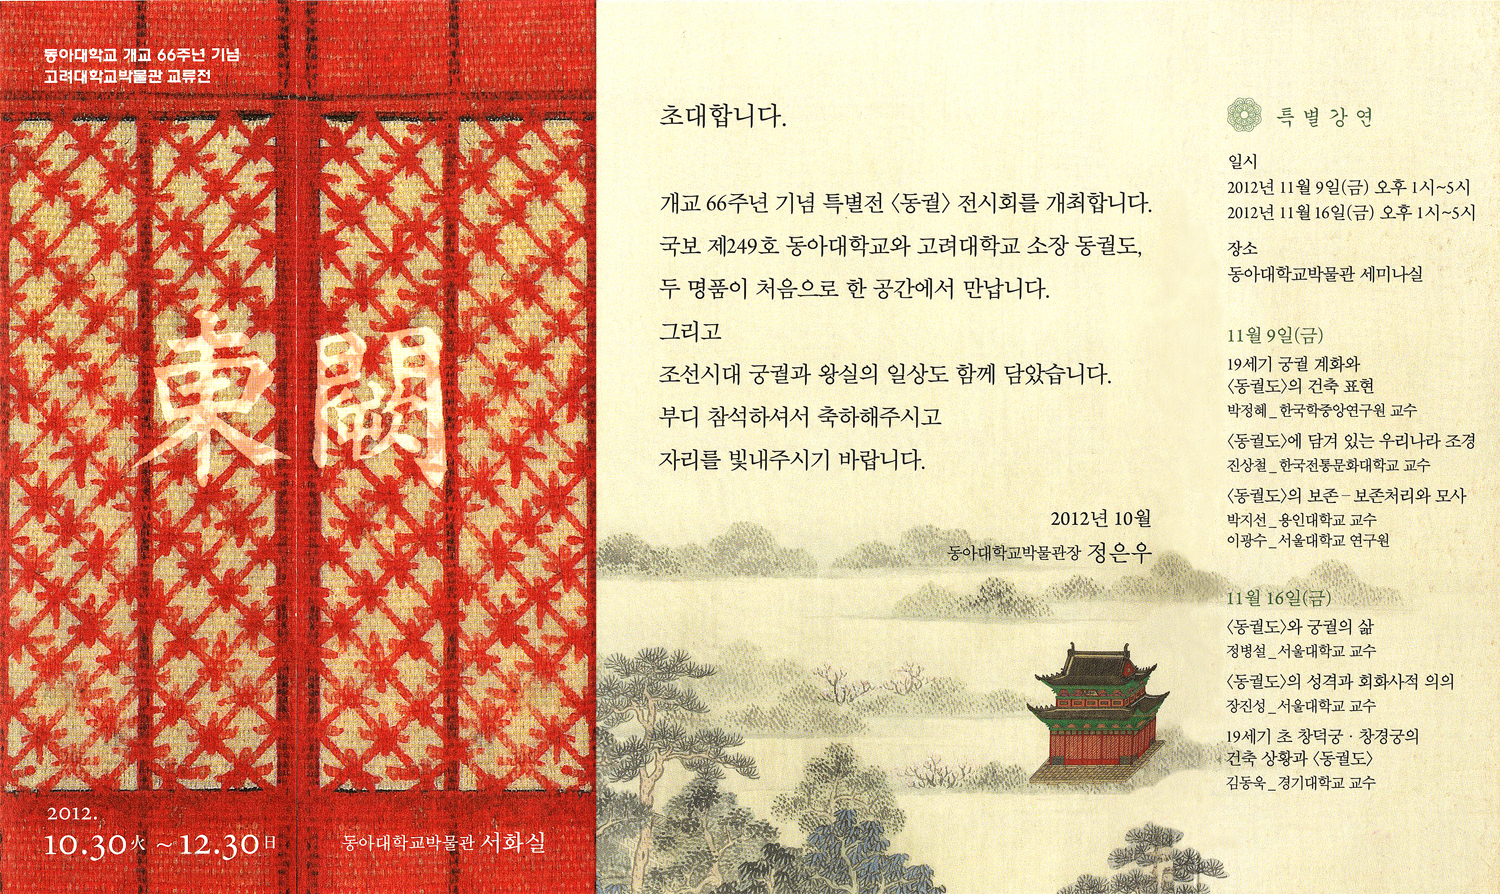 동아대학교 개교 66주년 기념
고려대학교박물관 교류전
東闕
2012.
10.30火 ~ 12.30日
동아대학교박물관 서화실
초대합니다.
개교 66주년 기념 특별전 〈동궐〉 전시회를 개최합니다.
국보 제249호 동아대학교와 고려대학교 소장 동궐도,
두 명품이 처음으로 한 공간에서 만납니다.
그리고
조선시대 궁궐과 왕실의 일상도 함께 담았습니다.
부디 참석하셔서 축하해주시고
자리를 빛내주시기 바랍니다.
2012년 10월
동아대학교박물관장 정은우
특별강연
일시
2012년 11월 9일(금) 오후 1시~5시
2012년 11월 16일(금) 오후 1시~5시
장소
동아대학교박물관 세미나실
11월 9일(금)
19세기 궁궐 계화와
〈동궐도〉의 건축 표현
박정혜_한국학중앙연구원 교수
〈동궐도〉에 담겨 있는 우리나라 조경
진상철_한국전통문화대학교 교수
〈동궐도〉의 보존 – 보존처리와 모사
박지선_용인대학교 교수
이광수_서울대학교 연구원
11월 16일(금)
〈동궐도〉와 궁궐의 삶
정병설_서울대학교 교수
〈동궐도〉의 성격과 회화사적 의의
장진성_서울대학교 교수
19세기 초 창덕궁 · 창경궁의
건축 상황과 〈동궐도〉
김동욱_경기대학교 교수